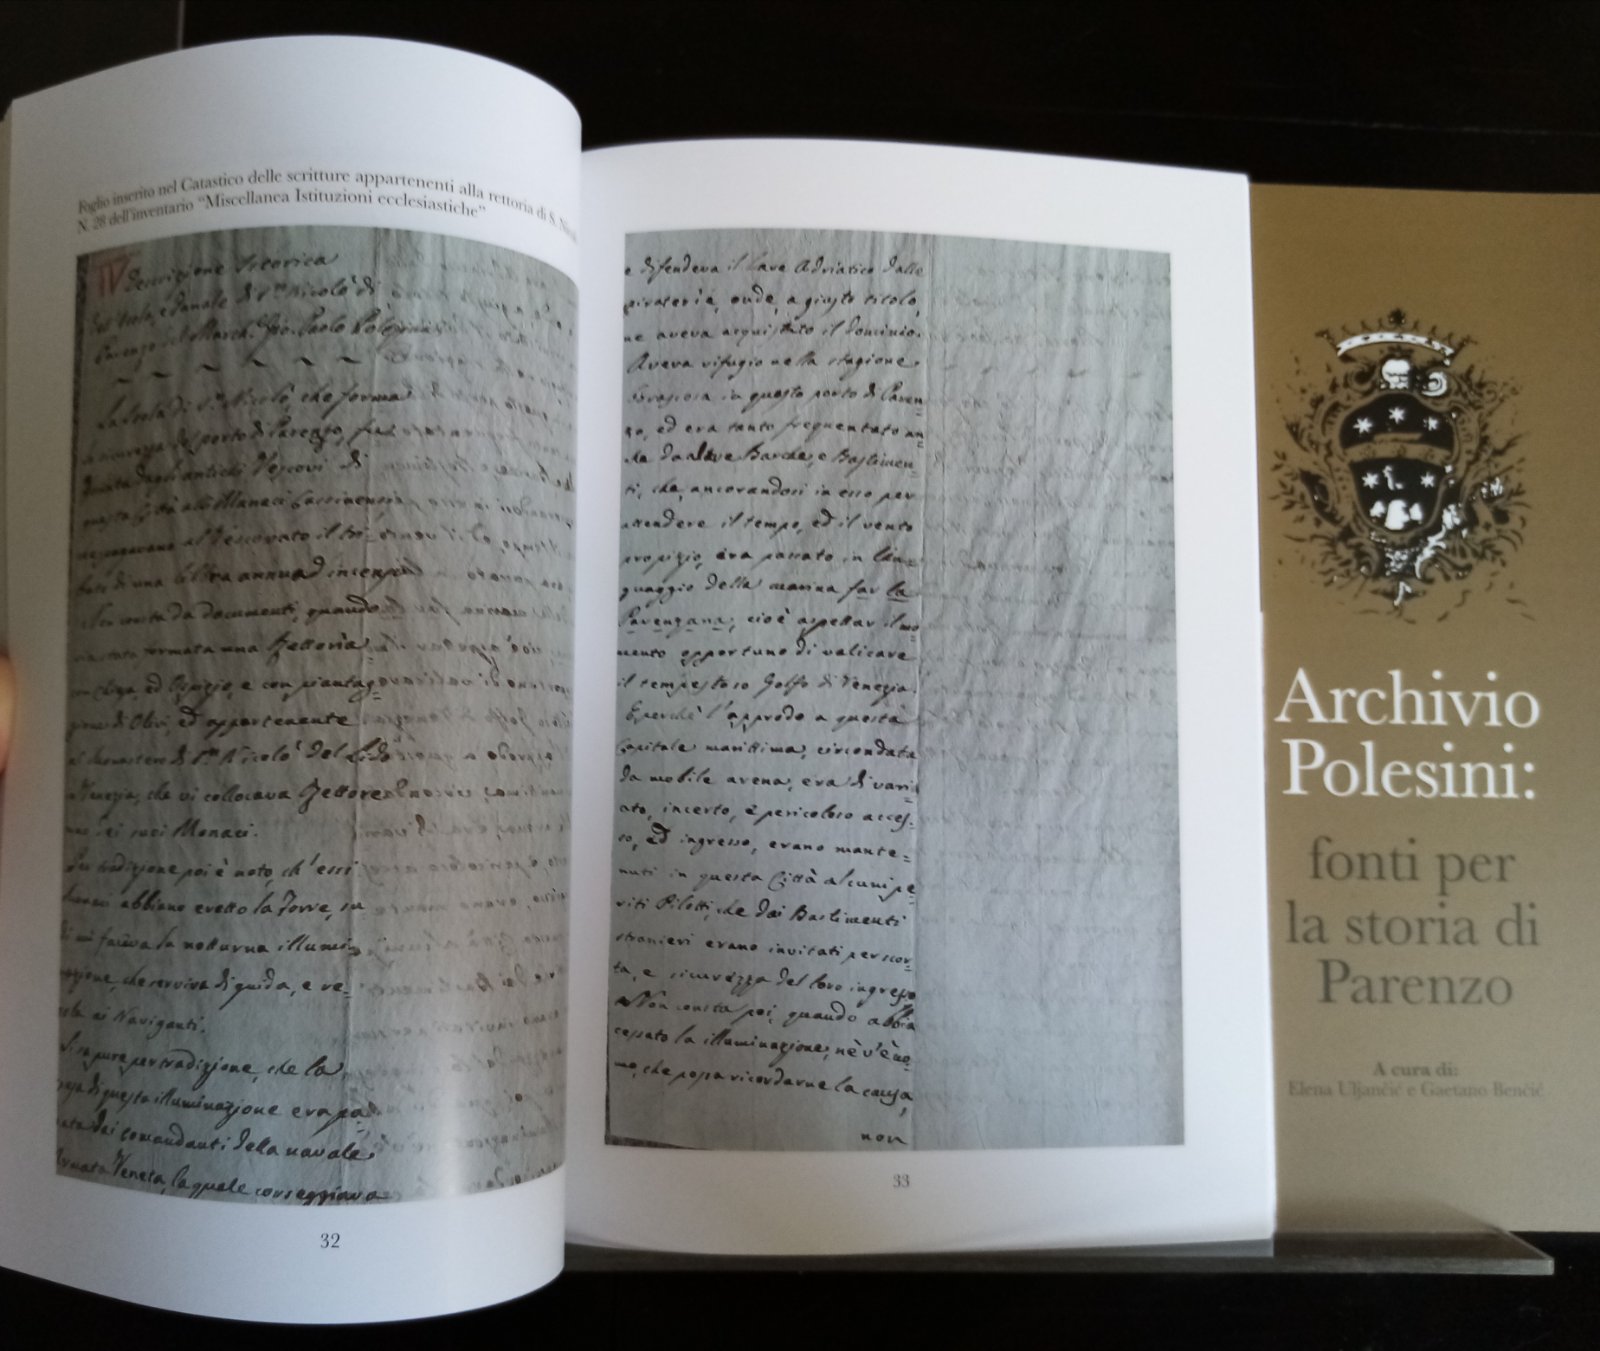 Foglio inserito nel Catastico delle scritture appartenenti alla rettoria di S. Nicolò
N. 28 dell'inventario "Miscellanea Istituzioni ecclesiastiche"
Descrizione Istorica
dell'Isola, e Fanale di S.n Nicolò di
Parenzo del March. Gio. Paolo Polesini
La Isola di S.n Nicolò, che forma
la sicurezza del porto di Parenzo, fu
donata dagli antichi Vescovi di
questa Città alli Monaci Cassinensi
che pagavano al Vescovato il tri=
buto di una libbra annua d'incenso
Non consta da documenti, quando
sia stata formata una Rettoria
con Chiesa, ed Ospizio, e con piantag=
gione di Olivi, ed appartenente
al Monastero di S.n Nicolò del Lido
di Venezia, che vi collocava Rettore
uno dei suoi Monaci.
Per tradizione poi è noto, ch'essi
Monaci abbiano eretto la Torre, su
di cui faceva la notturna illumi=
nazione, che serviva di guida, e re=
ai Naviganti.
Si sa pure per tradizione, che la
spesa di questa illuminazione era pa=
gata dai comandanti della navale
Armata Veneta, la quale corseggiava
32
e difendeva il Mare Adriatico dalle
piraterie, onde, a giusto titolo,
ne aveva acquistato il dominio.
Aveva rifugio nella stagione
burascosa in questo porto di Paren=
zo, ed era tanto frequentato an=
che da altre Barche, e Bastimen=
ti, che, ancorandosi in esso per
attendere il tempo, ed il vento
propizio, era passato in lin=
guaggio della marina far la
Parenzana, cioè aspettar il mo=
mento opportuno di valicare
il tempestoso Golfo di Venezia.
E perchè l'approdo a questa
Capitale marittima, circondata
da mobile arena, era di vari=
ato, incerto, e pericoloso acces=
so, ed ingresso, erano mante=
nuti in questa Città alcuni pe
riti Pilotti, che dai Bastimenti
stranieri erano invitati per scor=
ta, e sicurezza del loro ingresso
Non consta poi, quando abbia
cessato la illuminazione, nè v'è uo=
mo, che possa ricordarne la causa,
non
33
Archivio
Polesini:
fonti per
la storia di
Parenzo
A cura di:
Elena Uljančić e Gaetano Benčić